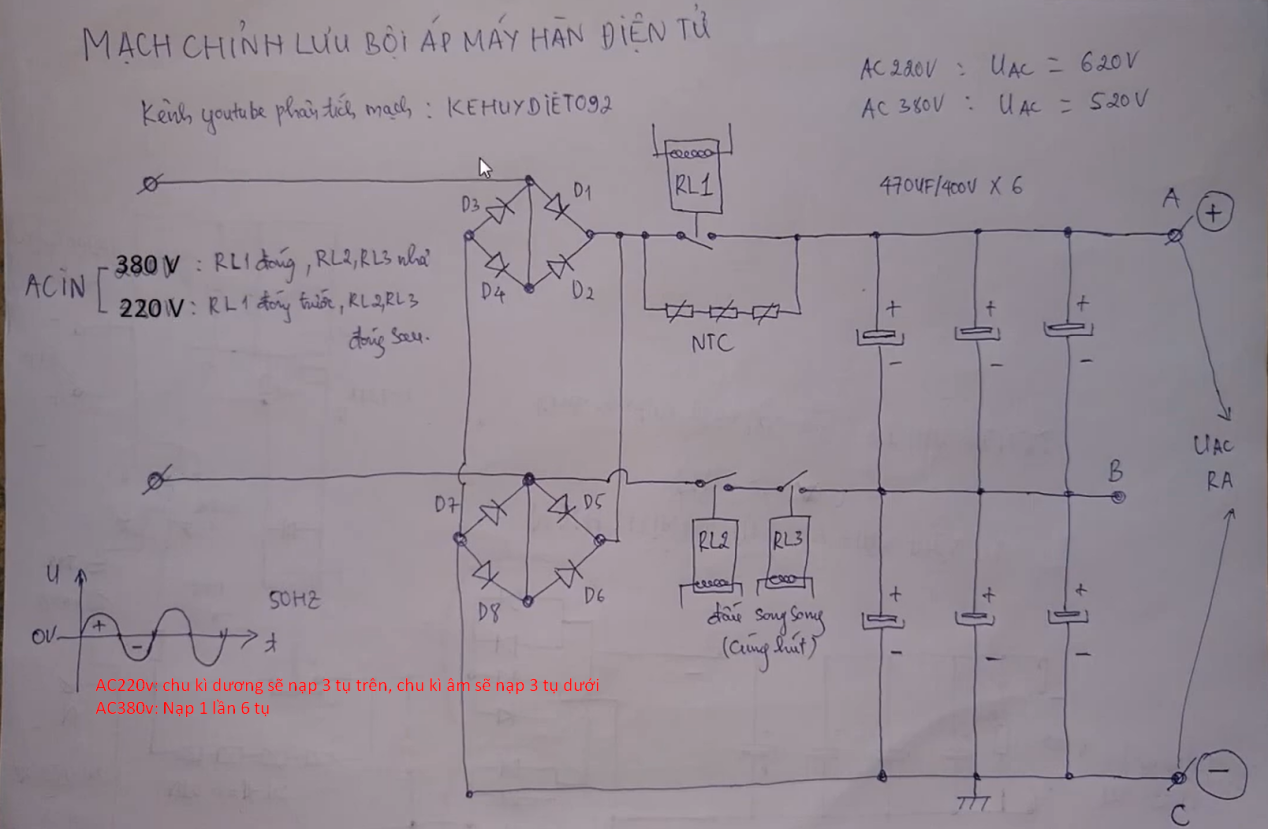 MẠCH CHỈNH LƯU BỘI ÁP MÁY HÀN ĐIỆN TỬ
Kênh youtube phân tích mạch : KEHUYDIET092
AC 220V : UAC = 620V
AC 380V : UAC = 520V
470UF/400V X 6
RL1
A
+
D3
D1
D4
D2
ACIN
380V : RL1 đóng, RL2, RL3 nhả
220V : RL1 đóng trước, RL2, RL3
đóng sau.
NTC
+
+
+
-
-
-
UAC
RA
B
D7
D5
D8
D6
RL2
RL3
đấu song song
(Cùng hút)
+
+
+
-
-
-
U
50HZ
0V
+
-
t
AC220v: chu kì dương sẽ nạp 3 tụ trên, chu kì âm sẽ nạp 3 tụ dưới
AC380v: Nạp 1 lần 6 tụ
-
C